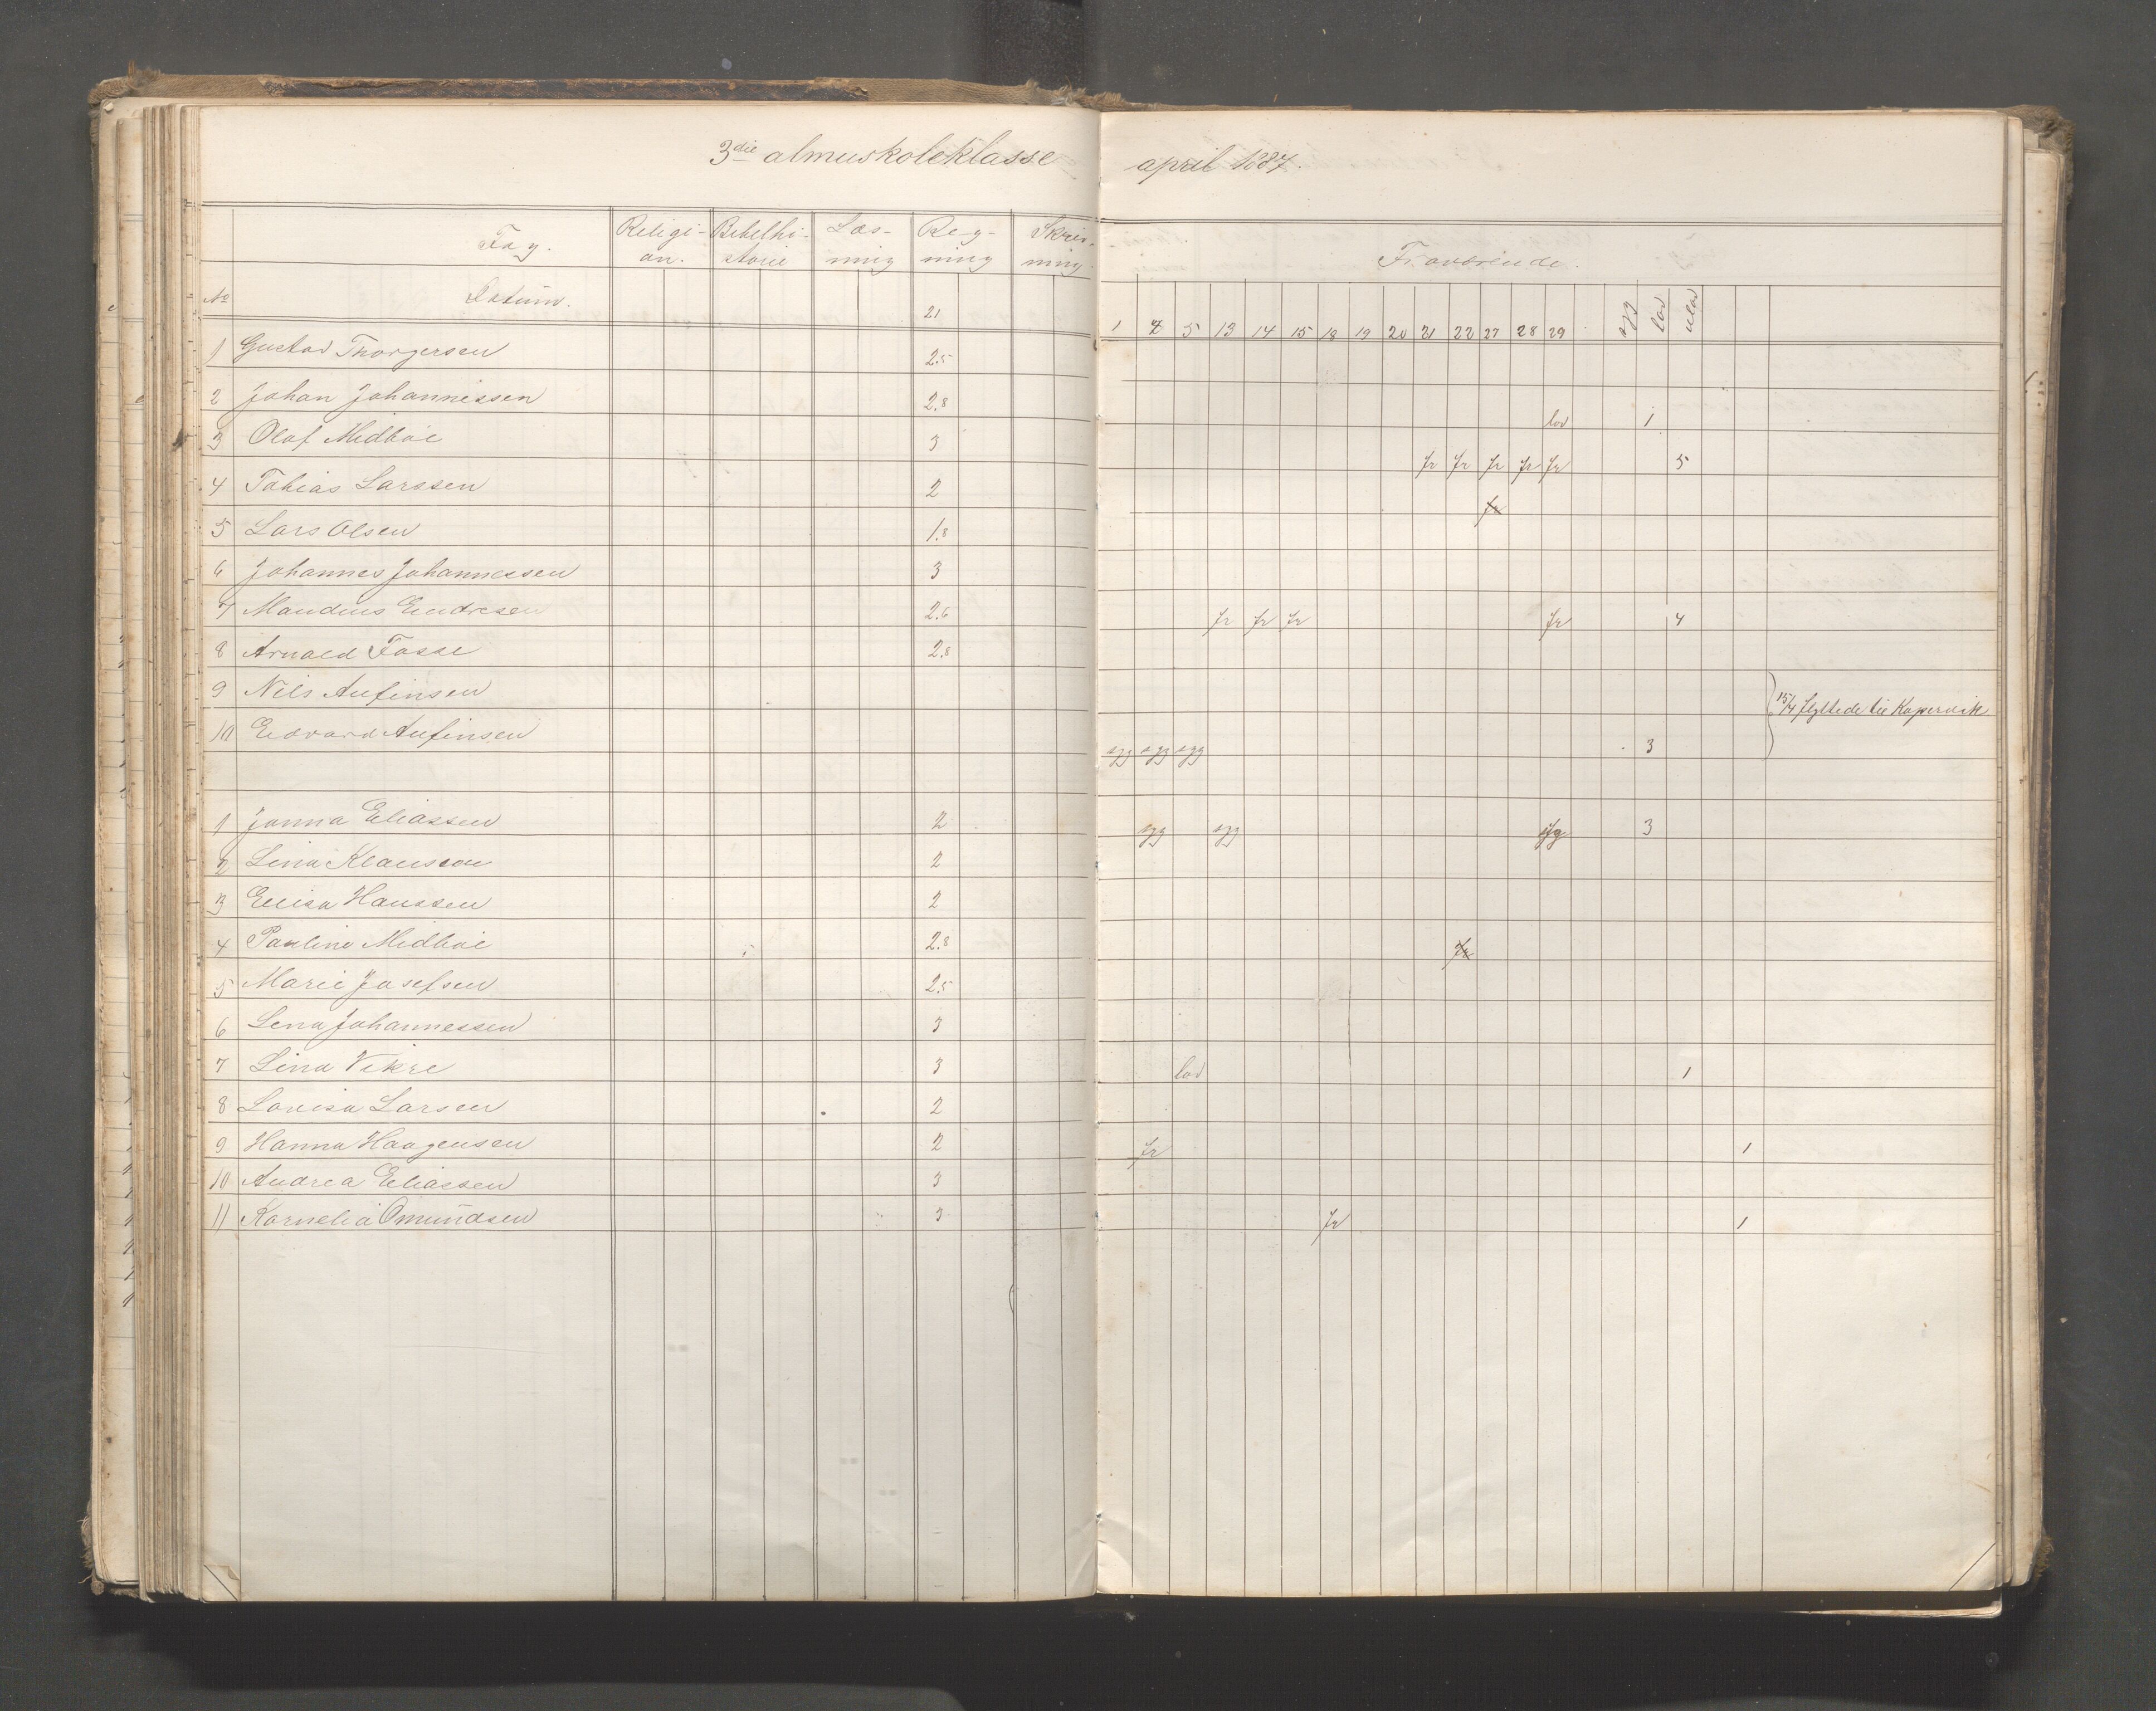 3die almuskoleklasse april 1887.
Fag. Religi- Bibelhi- Læs- Reg- Skriv-
on. storie ning ning ning.
Fraværende.
No Datum. 21
1 2 5 13 14 15 18 19 20 21 22 27 28 29 sgg lov ulov
1 Gustav Thorgersen 2.5
2 Johan Johannessen 2.8 lov 1
3 Olaf Midböe 3 fr fr fr fr fr 5
4 Tobias Larssen 2 fr
5 Lars Olsen 1.8
6 Johannes Johannessen 3
7 Maudius Endresen 2.6 fr fr fr fr 4
8 Arnold Fosse 2.8
9 Nils Anfinsen
15/4 flyttede til Kopervik
10 Edvard Anfinsen sgg sgg sgg 3
1 Janna Eliassen 2 sgg sgg 3
2 Lina Klausson 2
3 Elisa Hanssen 2
4 Pauline Midböe 2.8 fr
5 Marie Josefsen 2.5
6 Lena Johannessen 3
7 Lina Vikre 3 lov 1
8 Lovisa Larsen 2
9 Hanna Haagensen 2 fr 1
10 Andrea Eliassen 3
11 Kornelia Omundsen 3 fr 1